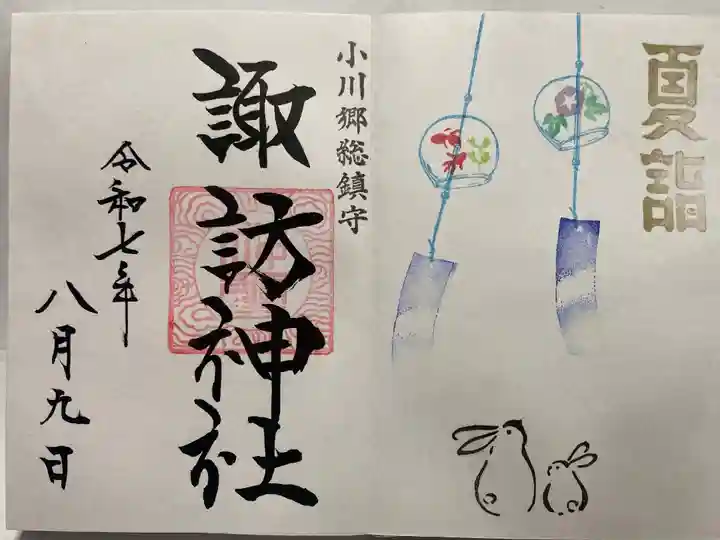 夏詣
小川郷総鎮守
諏訪神社
令和七年
八月九日